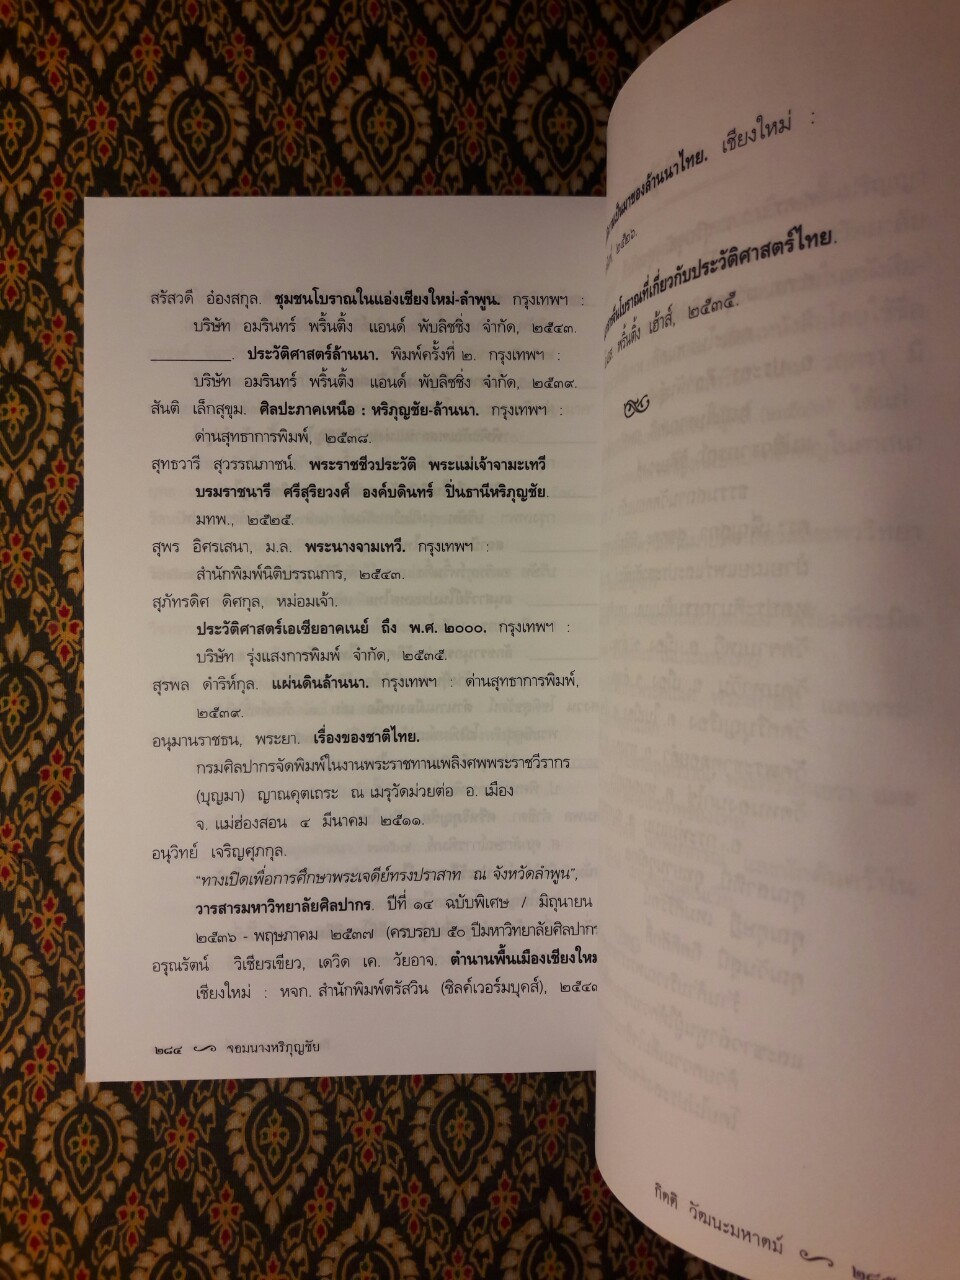 สรัสวดี อ๋องสกุล. ชุมชนโบราณในแอ่งเชียงใหม่-ลำพูน. กรุงเทพฯ :
บริษัท อมรินทร์ พริ้นติ้ง แอนด์ พับลิชชิ่ง จำกัด, ๒๕๔๓.
__________. ประวัติศาสตร์ล้านนา. พิมพ์ครั้งที่ ๒. กรุงเทพฯ :
บริษัท อมรินทร์ พริ้นติ้ง แอนด์ พับลิชชิ่ง จำกัด, ๒๕๓๙.
สันติ เล็กสุขุม. ศิลปะภาคเหนือ : หริภุญชัย-ล้านนา. กรุงเทพฯ :
ด่านสุทธาการพิมพ์, ๒๕๓๘.
สุทธวารี สุวรรณภาชน์. พระราชชีวประวัติ พระแม่เจ้าจามะเทวี
บรมราชนารี ศรีสุริยวงศ์ องค์บดินทร์ ปิ่นธานีหริภุญชัย.
มทพ., ๒๕๒๕.
สุพร อิศรเสนา, ม.ล. พระนางจามเทวี. กรุงเทพฯ :
สำนักพิมพ์นิติบรรณการ, ๒๕๔๓.
สุภัทรดิศ ดิศกุล, หม่อมเจ้า.
ประวัติศาสตร์เอเซียอาคเนย์ ถึง พ.ศ. ๒๐๐๐. กรุงเทพฯ :
บริษัท รุ่งแสงการพิมพ์ จำกัด, ๒๕๓๕.
สุรพล ดำริห์กุล. แผ่นดินล้านนา. กรุงเทพฯ : ด่านสุทธาการพิมพ์,
๒๕๓๙.
อนุมานราชธน, พระยา. เรื่องของชาติไทย.
กรมศิลปากรจัดพิมพ์ในงานพระราชทานเพลิงศพพระราชวีรากร
(บุญมา) ญาณคุตเถระ ณ เมรุวัดม่วยต่อ อ. เมือง
จ. แม่ฮ่องสอน ๔ มีนาคม ๒๕๑๑.
อนุวิทย์ เจริญศุภกุล.
"ทางเปิดเพื่อการศึกษาพระเจดีย์ทรงปราสาท ณ จังหวัดลำพูน",
วารสารมหาวิทยาลัยศิลปากร. ปีที่ ๑๔ ฉบับพิเศษ / มิถุนายน
๒๕๓๖ - พฤษภาคม ๒๕๓๗ (ครบรอบ ๕๐ ปีมหาวิทยาลัยศิลปากร
อรุณรัตน์ วิเชียรเขียว, เดวิด เค. วัยอาจ. ตำนานพื้นเมืองเชียงใหม่
เชียงใหม่ : หจก. สำนักพิมพ์ตรัสวิน (ซิลค์เวอร์มบุคส์), ๒๕๔๓
๒๘๔ จอมนางหริภุญชัย
เป็นมาของล้านนาไทย. เชียงใหม่ :
๒๕๒๖.
โบราณที่เกี่ยวกับประวัติศาสตร์ไทย.
พริ้นติ้ง เฮ้าส์, ๒๕๓๕.
กิตติ วัฒนะมหาตม์